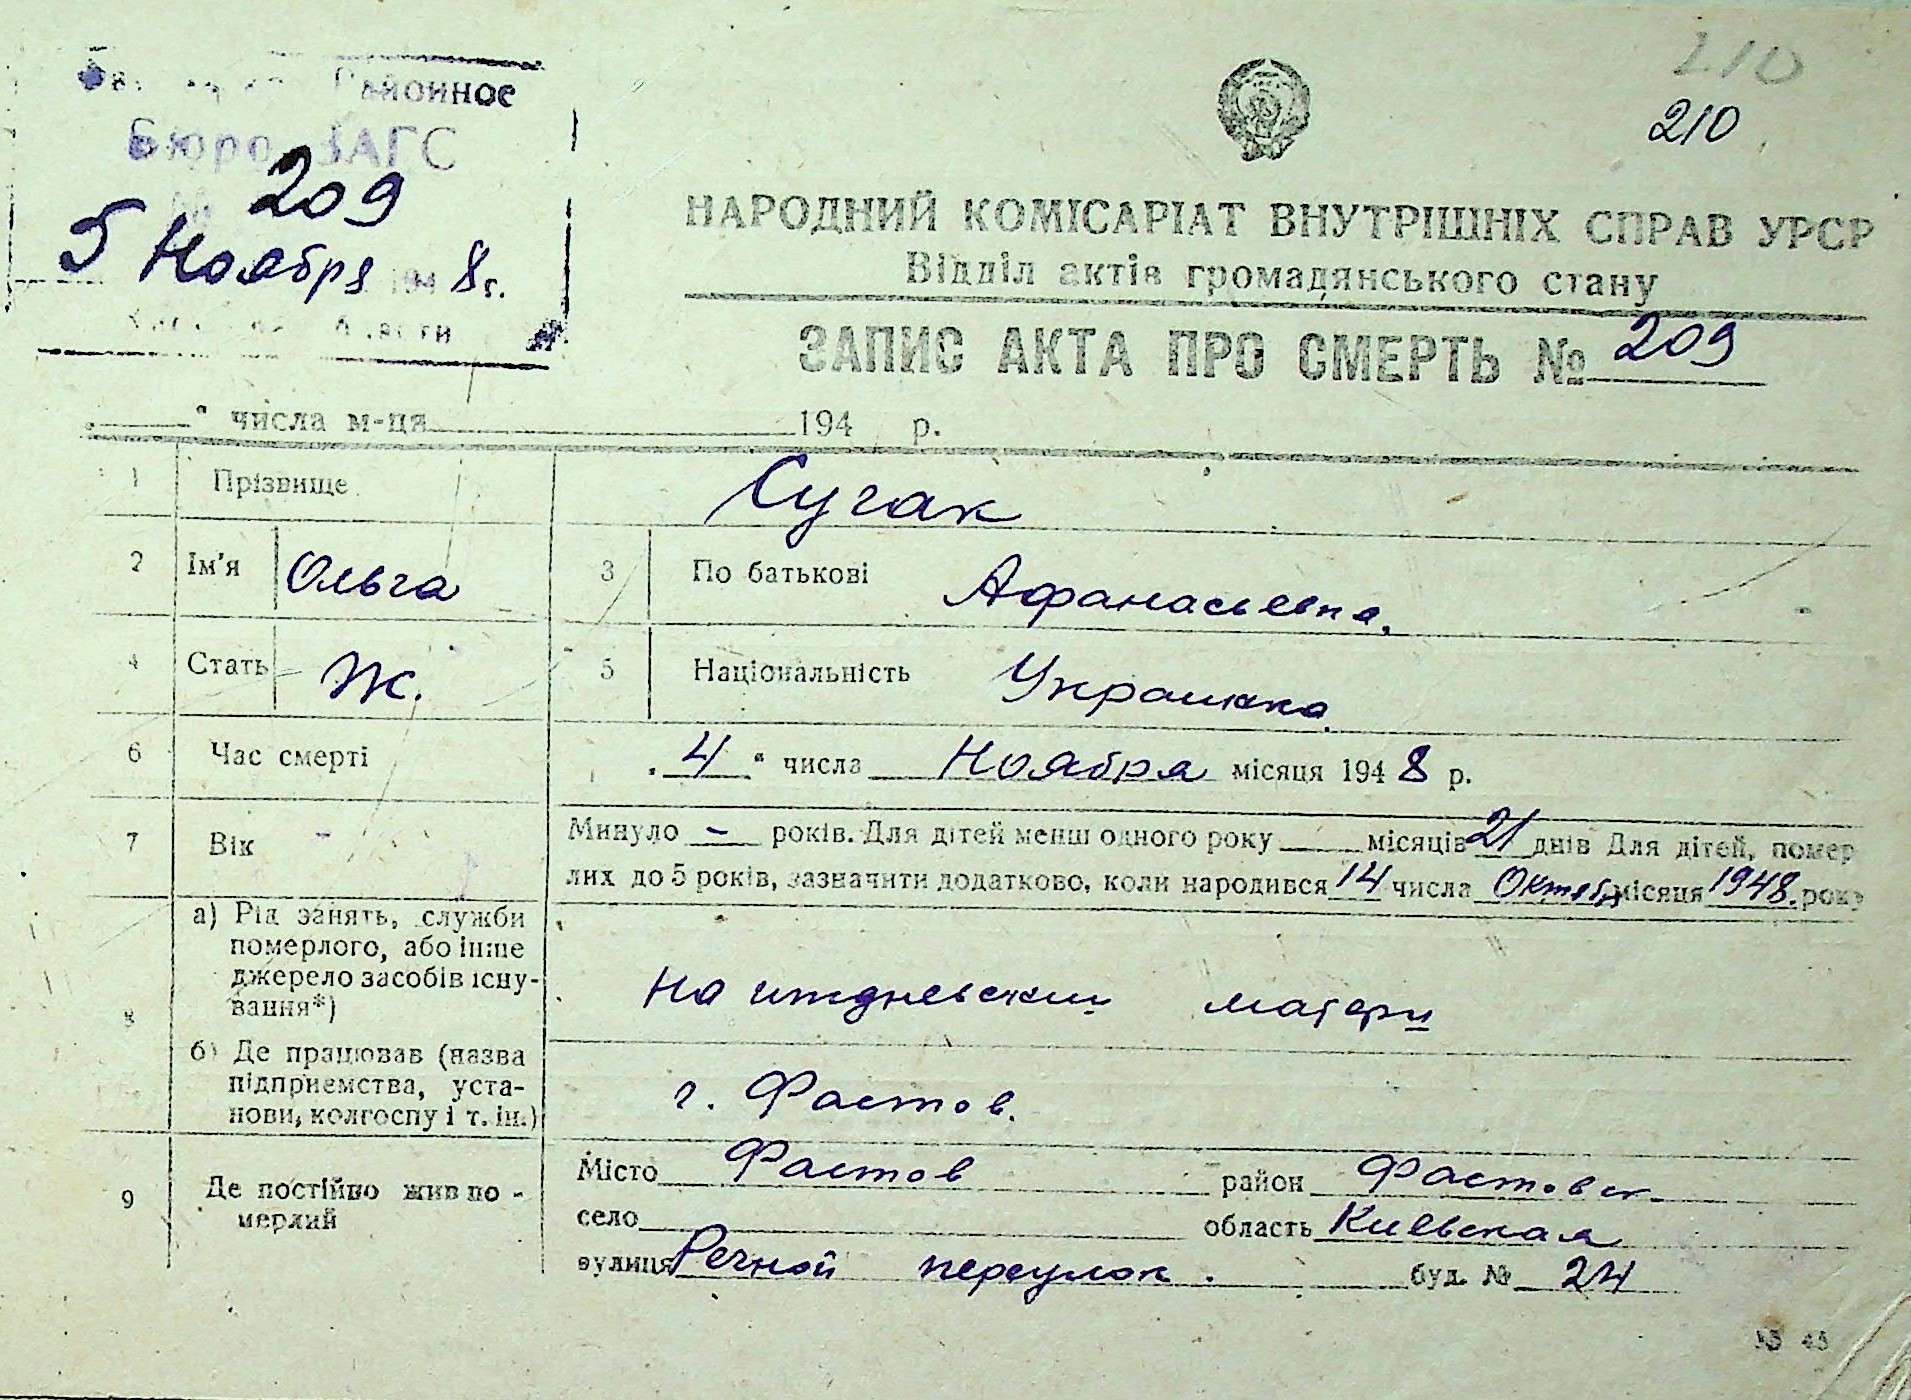 210
210
Районное
Бюро ЗАГС
209
5 Ноября 1948 г.
НАРОДНИЙ КОМІСАРІАТ ВНУТРІШНІХ СПРАВ УРСР
Відділ актів громадянського стану
ЗАПИС АКТА ПРО СМЕРТЬ № 209
" числа м-ця 194 р.
1 Прізвище Сугак
2 Ім'я Ольга 3 По батькові Афанасьевна.
4 Стать Ж. 5 Національність Украинка.
6 Час смерті „4" числа Ноября місяця 1948 р.
7 Вік Минуло – років. Для дітей менш одного року місяців 21 днів Для дітей, помер
лих до 5 років, зазначити додатково, коли народився 14 числа Октяб місяця 1948. року
8 а) Рід занять, служби
померлого, або інше
джерело засобів існу-
вання*)
На иждневении матери
б) Де працював (назва
підприємства, уста-
нови, колгоспу і т. ін.)
г. Фастов.
9 Де постійно жив по-
мерлий
Місто Фастов район Фастовск.
село область Киевская
вулиця Речной переулок. буд. № 24